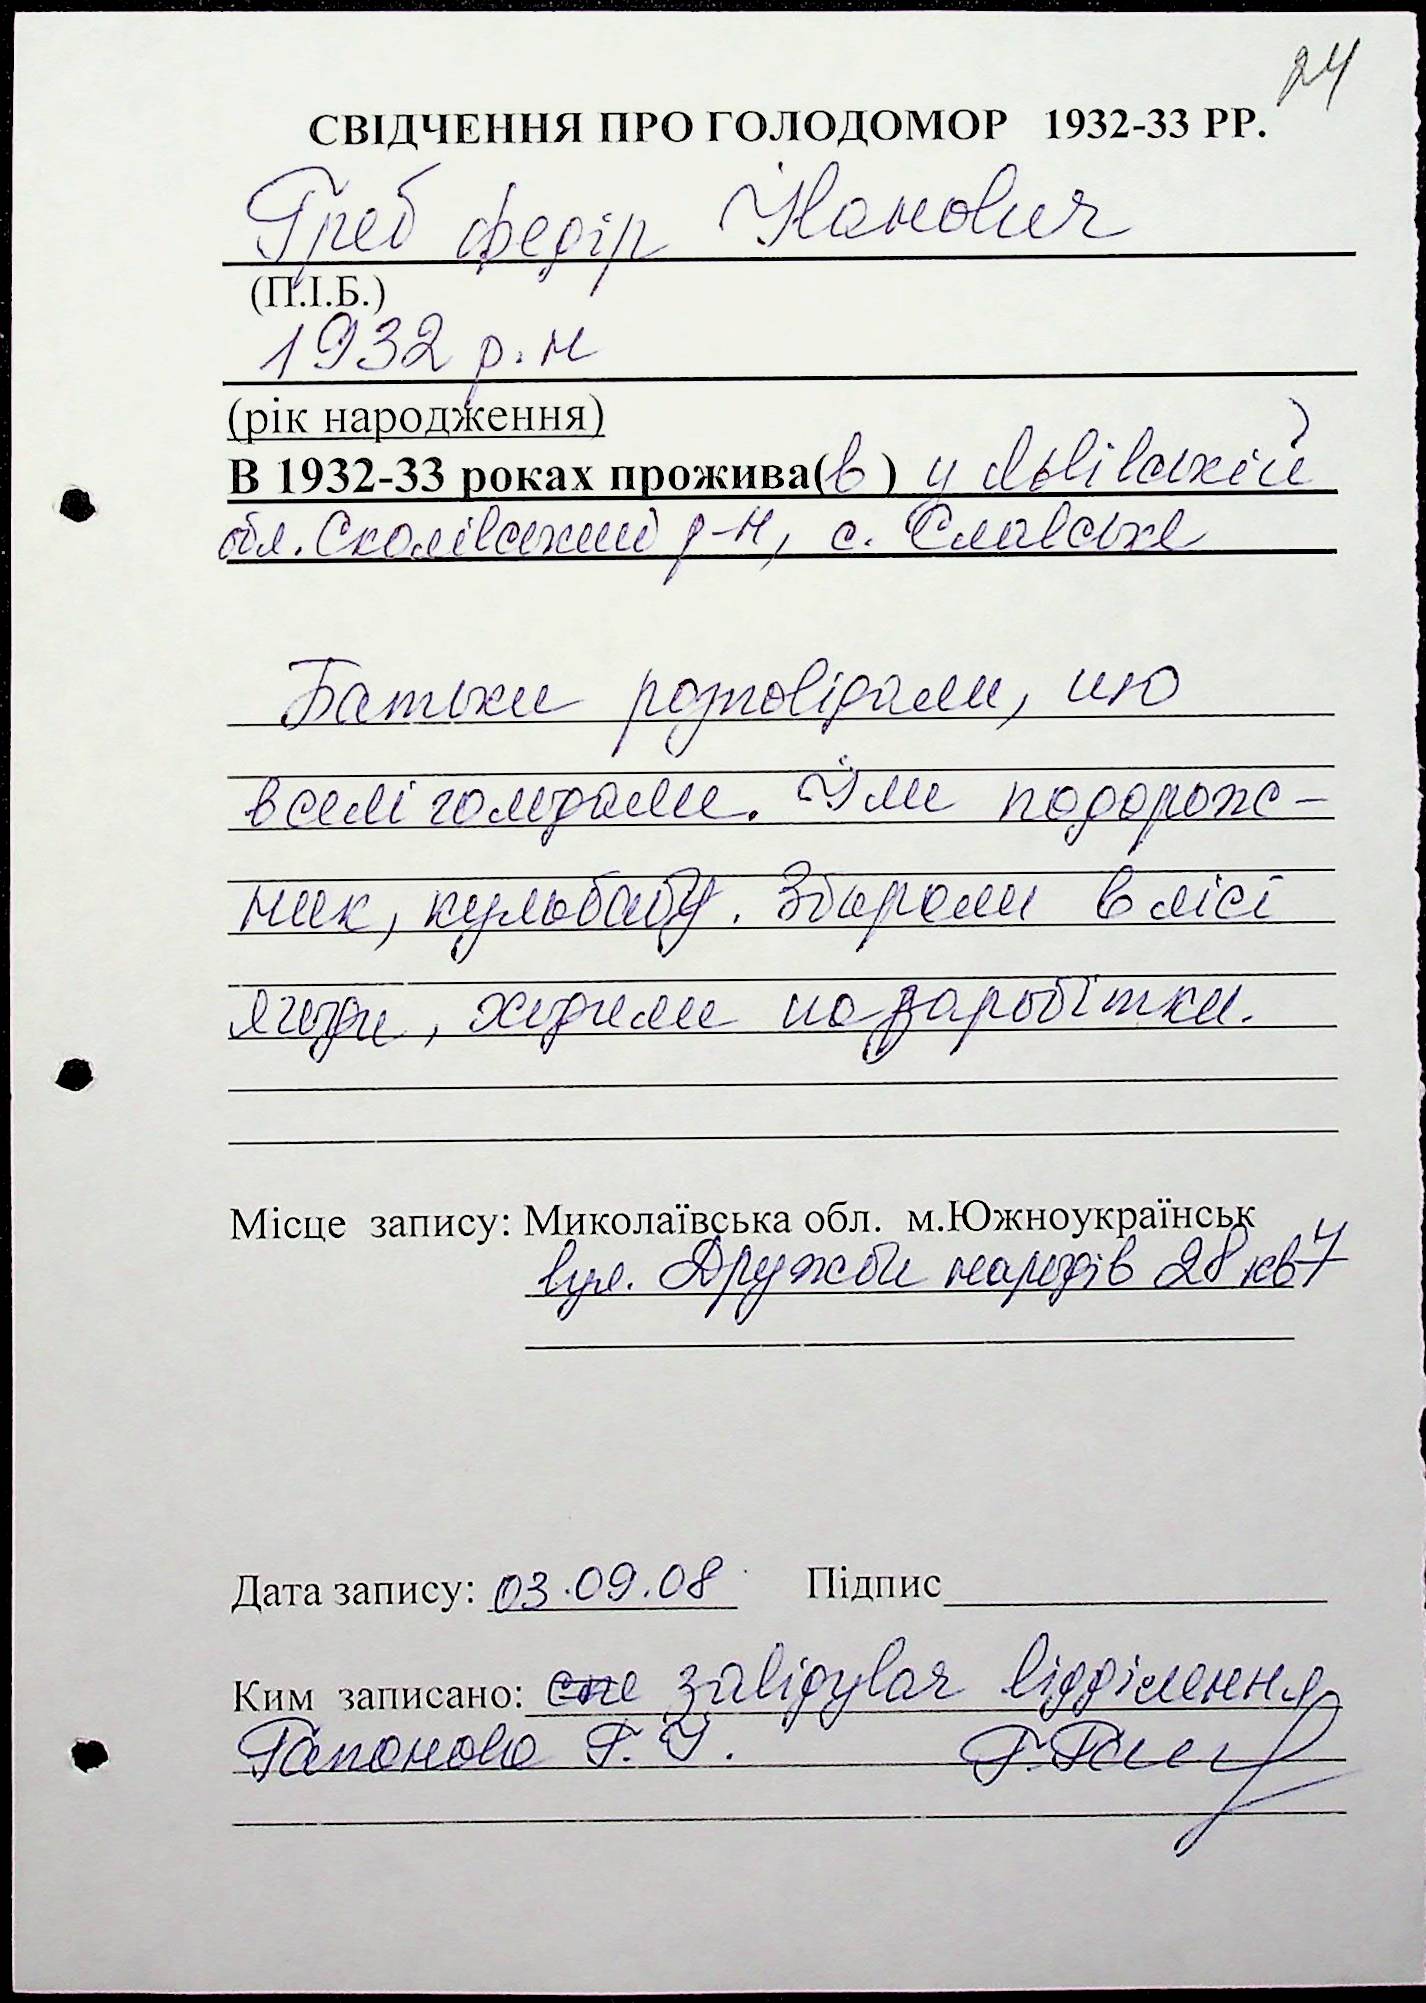 24
СВІДЧЕННЯ ПРО ГОЛОДОМОР 1932-33 РР.
Греб Федір Йванович
(П.І.Б.)
1932 р.н
(рік народження)
В 1932-33 роках прожива(в) у Львівській
обл. Сколівський р-н, с. Славське
Батьки розповідали, що
в селі голодали. Їли подорож-
ник, кульбабу. Збирали в лісі
ягоди, ходили на заробітки.
Місце запису: Миколаївська обл. м.Южноукраїнськ
вул. Дружби народів 28 кв 7
Дата запису: 03.09.08 Підпис
Ким записано: завідувач відділення
Гапонова Г.